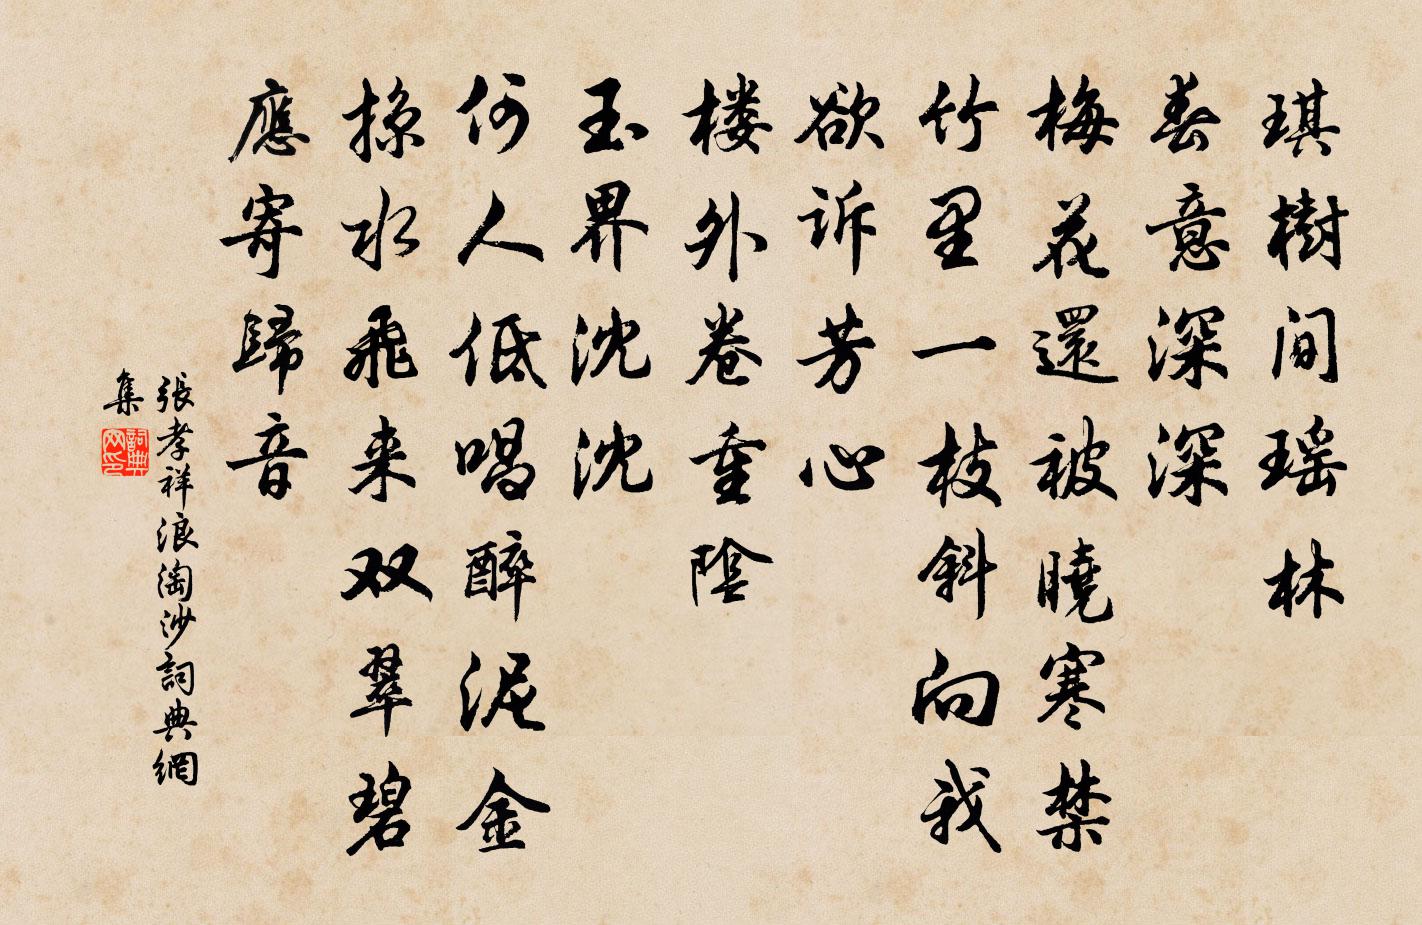 琪樹間瑶林
春意深深
梅花還被曉寒禁
竹里一枝斜向我
欲訴芳心
楼外卷重陰
玉界沈沈
何人低唱醉泥金
掠水飛来双翠碧
應寄歸音
張孝祥浪淘沙詞典網
集
詞典网印